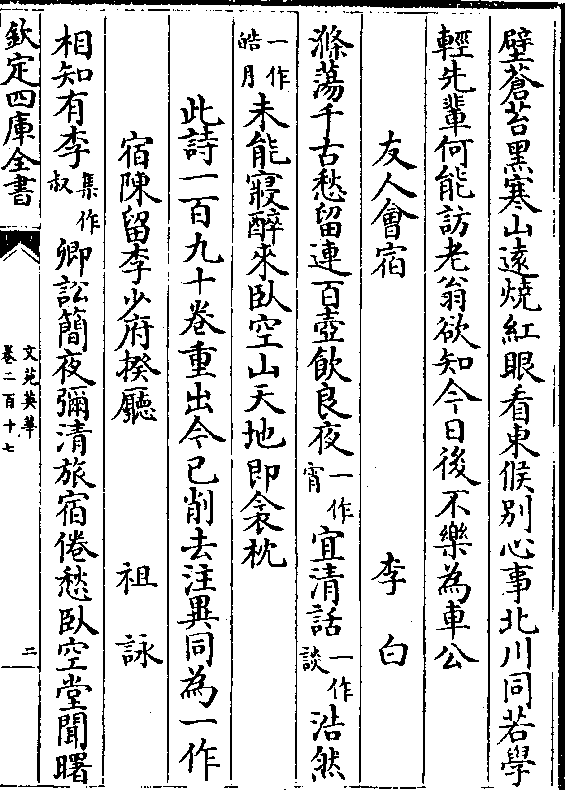 壁蒼苔黑寒山遠燒紅眼看東候别心事北川同若學
輕先輩何能訪老翁欲知今日後不樂為車公
友人會宿 李白
滌蕩千古愁留連百壺飲良夜一作宵宜清話一作談浩然
一作皓月未能寢醉來臥空山天地即衾枕
此詩一百九十卷重出今已削去注異同為一作
宿陳留李少府揆廳 祖詠
相知有李集作叔卿訟簡夜彌清旅宿倦愁臥空堂聞曙
欽定四庫全書
文苑英華
卷二百十七
二